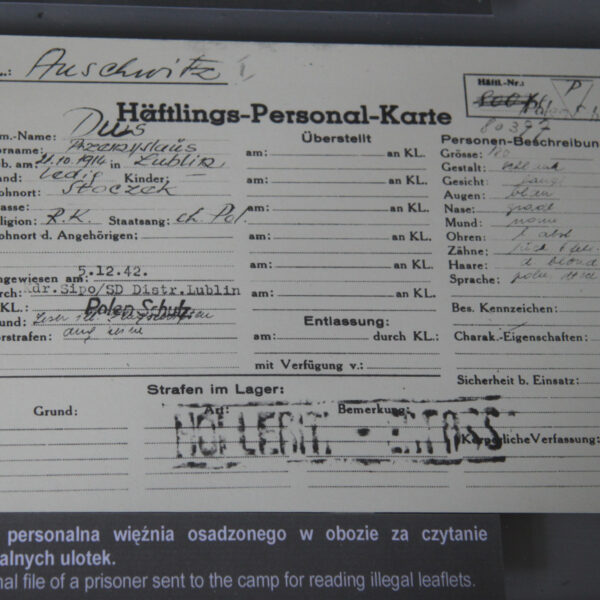 .: Auschwitz
Häftl.-Nr.:
P
80377
Häftlings-Personal-Karte
m.-Name: Dus
orname: Przemysław
b. am 21.10.1914 in Lublin
and: ledig Kinder: —
ohnort: Stoczek
asse:
ligion: R.K. Staatsang: eh. Pol.
ohnort d. Angehörigen:
ngewiesen am: 5.12.42.
rch: Kdr.Sipo/SD Distr.Lublin
KL.: Polen Schutz.
und: Lesen
orstrafen:
Überstellt
am: an KL.
am: an KL.
am: an KL.
am: an KL.
am: an KL.
am: an KL.
Entlassung:
am: durch KL.:
mit Verfügung v.:
Personen-Beschreibun
Grösse:
Gestalt: schlank
Gesicht:
Augen: blau
Nase:
Mund: norm
Ohren:
Zähne:
Haare: d blond
Sprache: poln
Bes. Kennzeichen:
Charak.-Eigenschaften:
Sicherheit b. Einsatz:
Körperliche Verfassung:
Strafen im Lager:
Grund: Art: Bemerkung:
HOLLERITH ERFASST
personalna więźnia osadzonego w obozie za czytanie
alnych ulotek.
nal file of a prisoner sent to the camp for reading illegal leaflets.